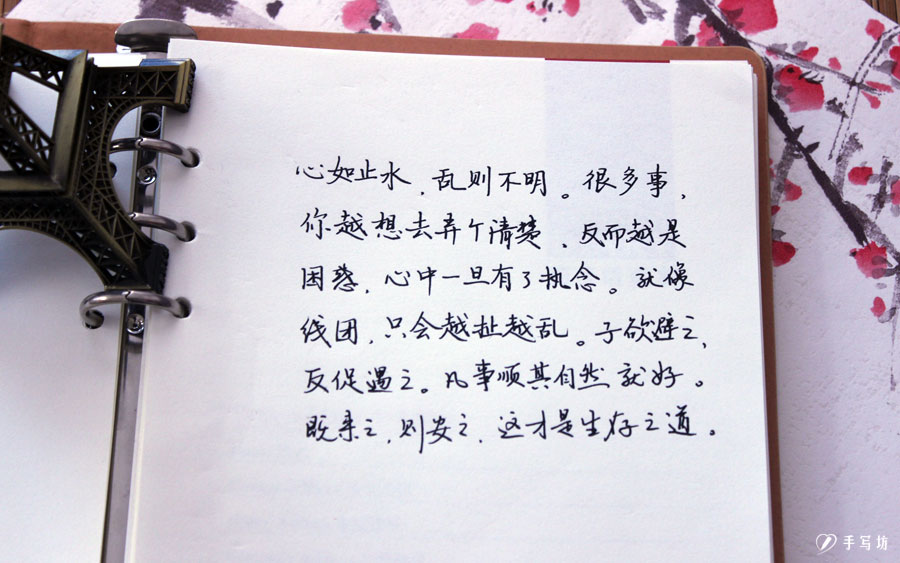 心如止水，乱则不明。很多事，
你越想去弄个清楚，反而越是
困惑，心中一旦有了执念。就像
线团，只会越扯越乱。子欲避之，
反促遇之。凡事顺其自然就好。
既来之，则安之，这才是生存之道。
手写坊